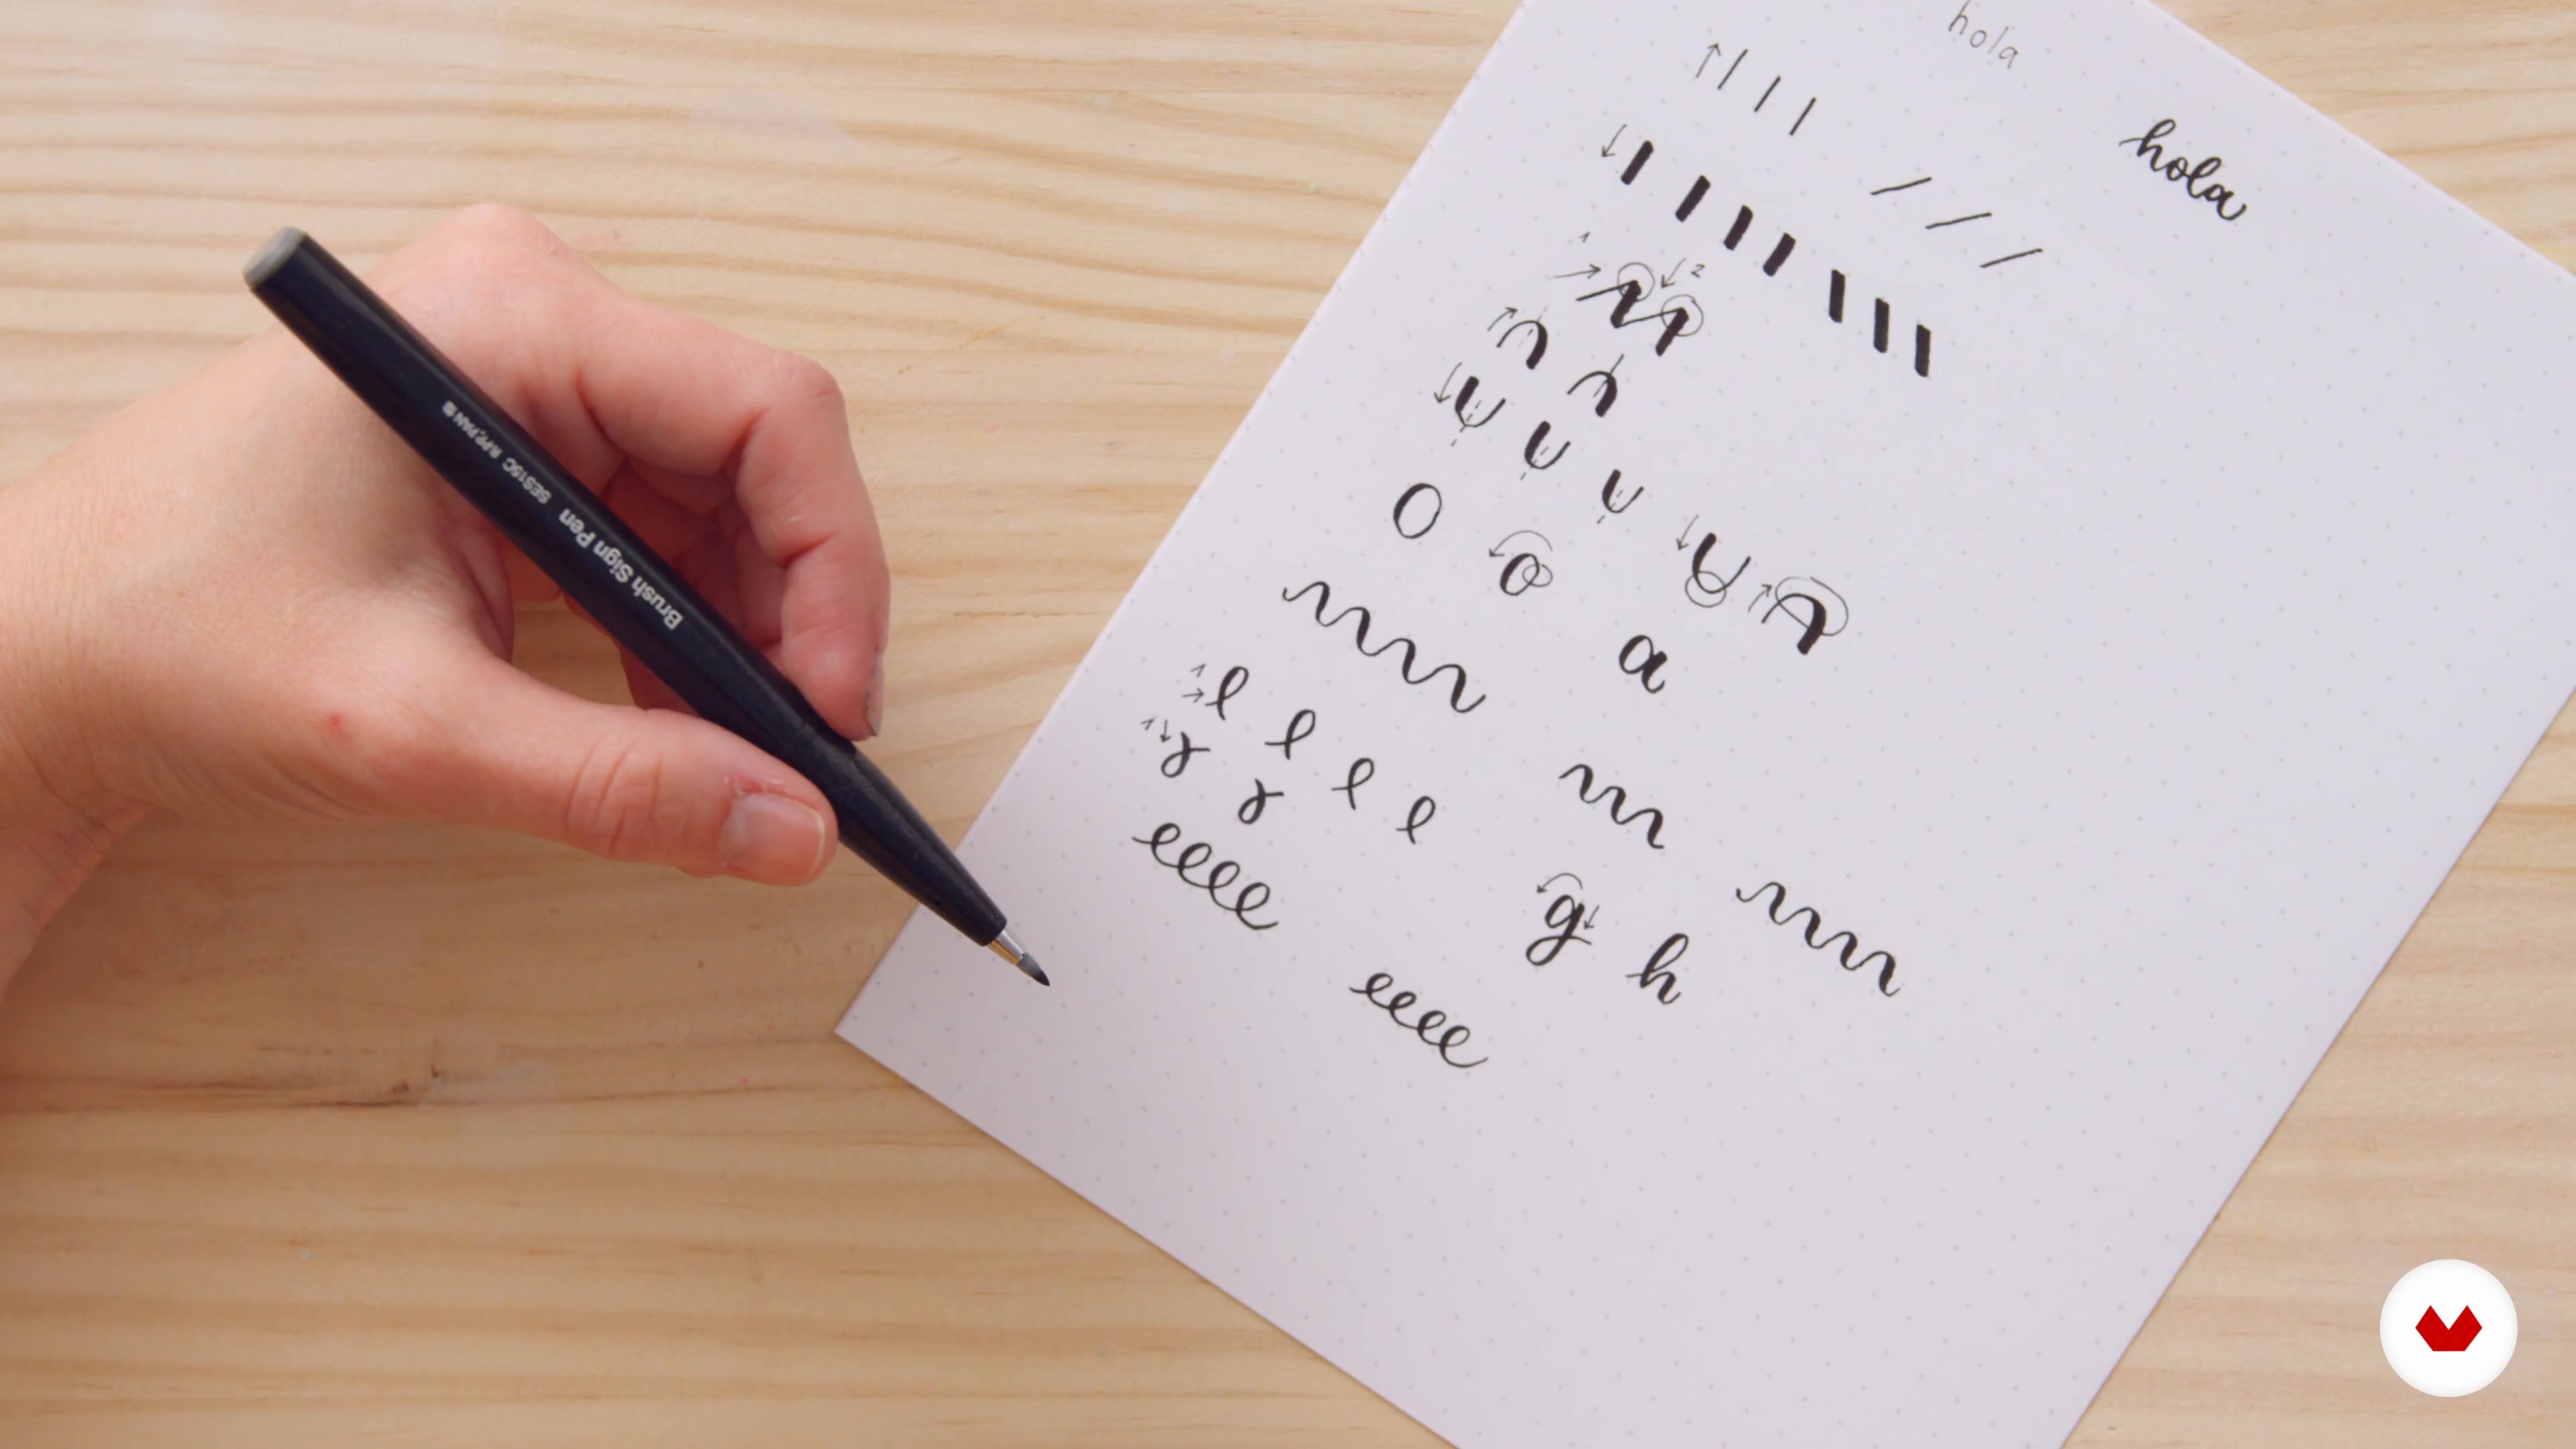 hola
hola
1
2
O o a
l l l l
eeee
g h
eeee
Brush Sign Pen SES15C